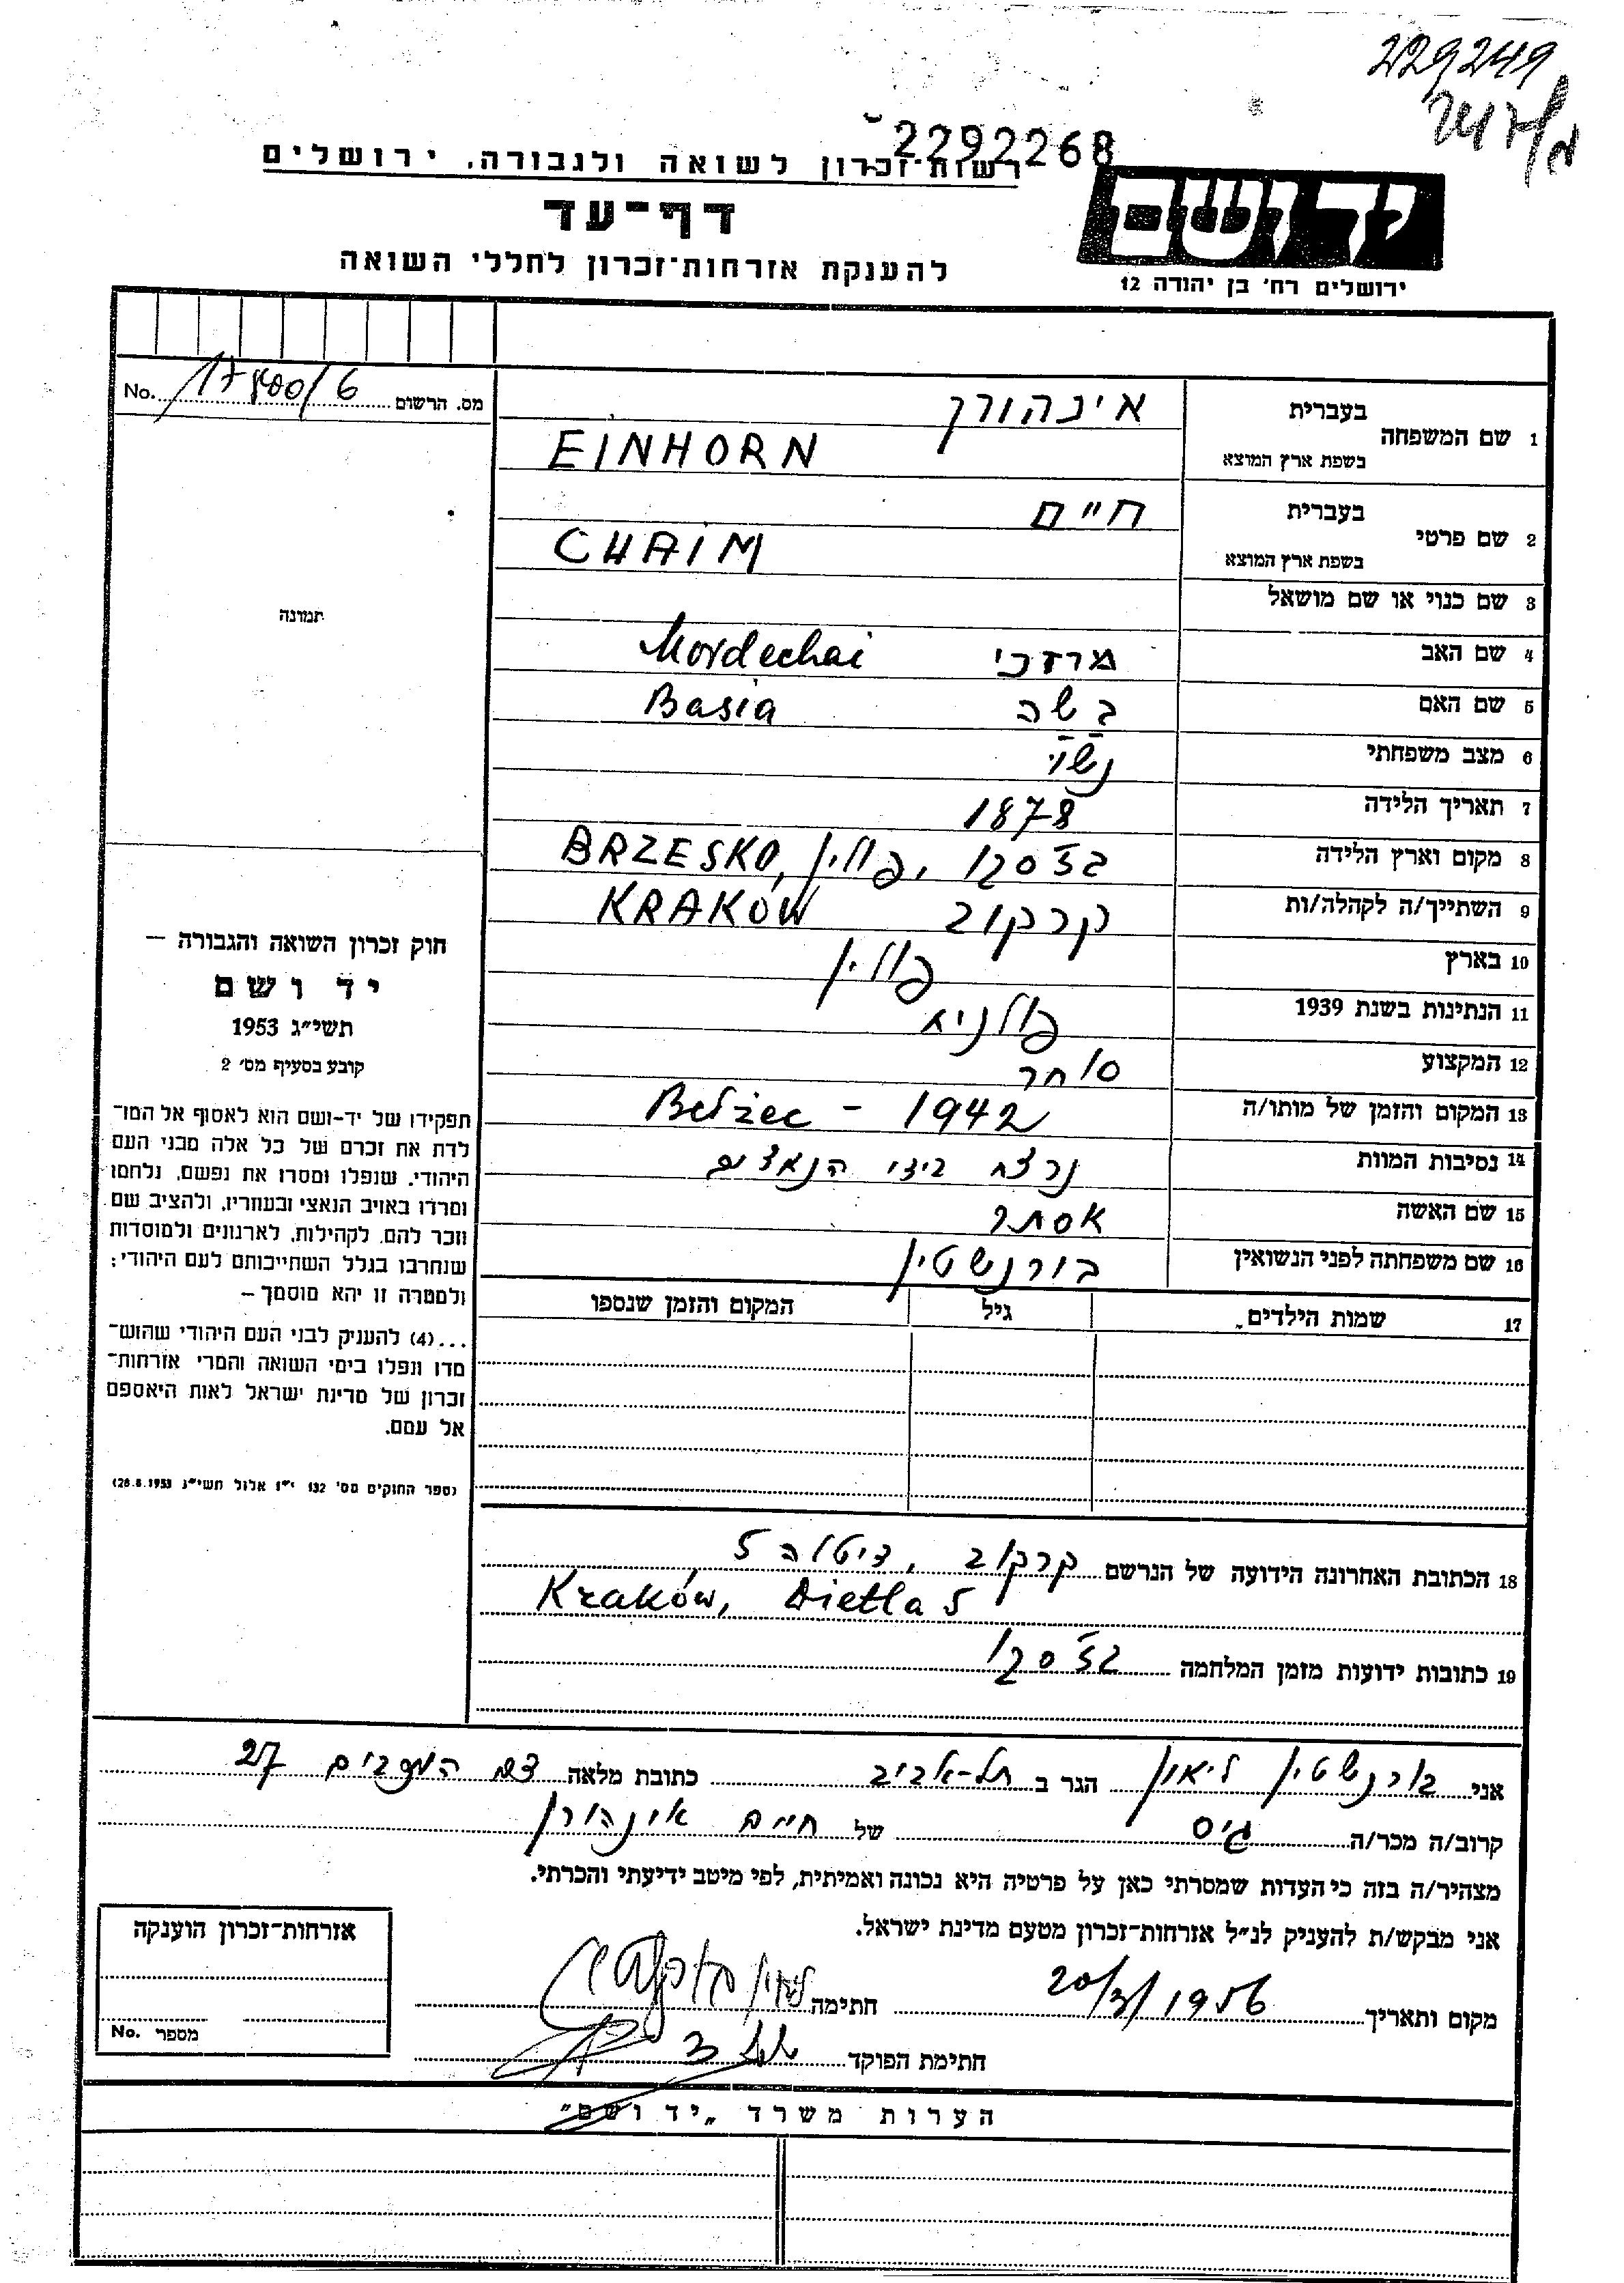 229249
2292268
רשות־זכרון לשואה ולגבורה, ירושלים
יד ושם
דף־עד
להענקת אזרחות־זכרון לחללי השואה
ירושלים רח' בן יהודה 12
מס. הרשום 17400/6 No.
1 שם המשפחה בעברית אינהורן
בשפת ארץ המוצא EINHORN
2 שם פרטי בעברית חיים
בשפת ארץ המוצא CHAIM
3 שם כנוי או שם מושאל
תמונה
4 שם האב מרדכי Mordechai
5 שם האם בשה Basia
6 מצב משפחתי נשוי
7 תאריך הלידה 1878
8 מקום וארץ הלידה בז'סקו, פולין BRZESKO,
9 השתייך/ה לקהלה/ות קרקוב KRAKÓW
10 בארץ פולין
11 הנתינות בשנת 1939 פולנית
12 המקצוע סוחר
13 המקום והזמן של מותו/ה 1942 - Bełżec
14 נסיבות המוות נרצח בידי הנאצים
15 שם האשה אסתר
16 שם משפחתה לפני הנשואין בורנשטין
17 שמות הילדים גיל המקום והזמן שנספו
חוק זכרון השואה והגבורה —
יד ושם
תשי"ג 1953
קובע בסעיף מס' 2
תפקידו של יד-ושם הוא לאסוף אל המו־
לדת את זכרם של כל אלה מבני העם
היהודי, שנפלו ומסרו את נפשם, נלחמו
ומרדו באויב הנאצי ובעוזריו, ולהציב שם
וזכר להם, לקהילות, לארגונים ולמוסדות
שנחרבו בגלל השתייכותם לעם היהודי;
ולמטרה זו יהא מוסמך –
...(4) להעניק לבני העם היהודי שהוש־
מדו ונפלו בימי השואה והמרי אזרחות־
זכרון של מדינת ישראל לאות היאספם
אל עמם.
(ספר החוקים מס' 132 י"ז אלול תשי"ג 28.8.1953)
18 הכתובת האחרונה הידועה של הנרשם קרקוב, דיטלה 5
Kraków, Dietla 5
19 כתובות ידועות מזמן המלחמה בז'סקו
אני בורנשטין ליאון הגר ב תל-אביב כתובת מלאה המכבים 27
קרוב/ה מכר/ה גיס של חיים אינהורן
מצהיר/ה בזה כי העדות שמסרתי כאן על פרטיה היא נכונה ואמיתית, לפי מיטב ידיעתי והכרתי.
אני מבקש/ת להעניק לנ"ל אזרחות־זכרון מטעם מדינת ישראל.
מקום ותאריך 20/3/1956 חתימה
חתימת הפוקד
אזרחות־זכרון הוענקה
מספר No.
הערות משרד "יד ושם"